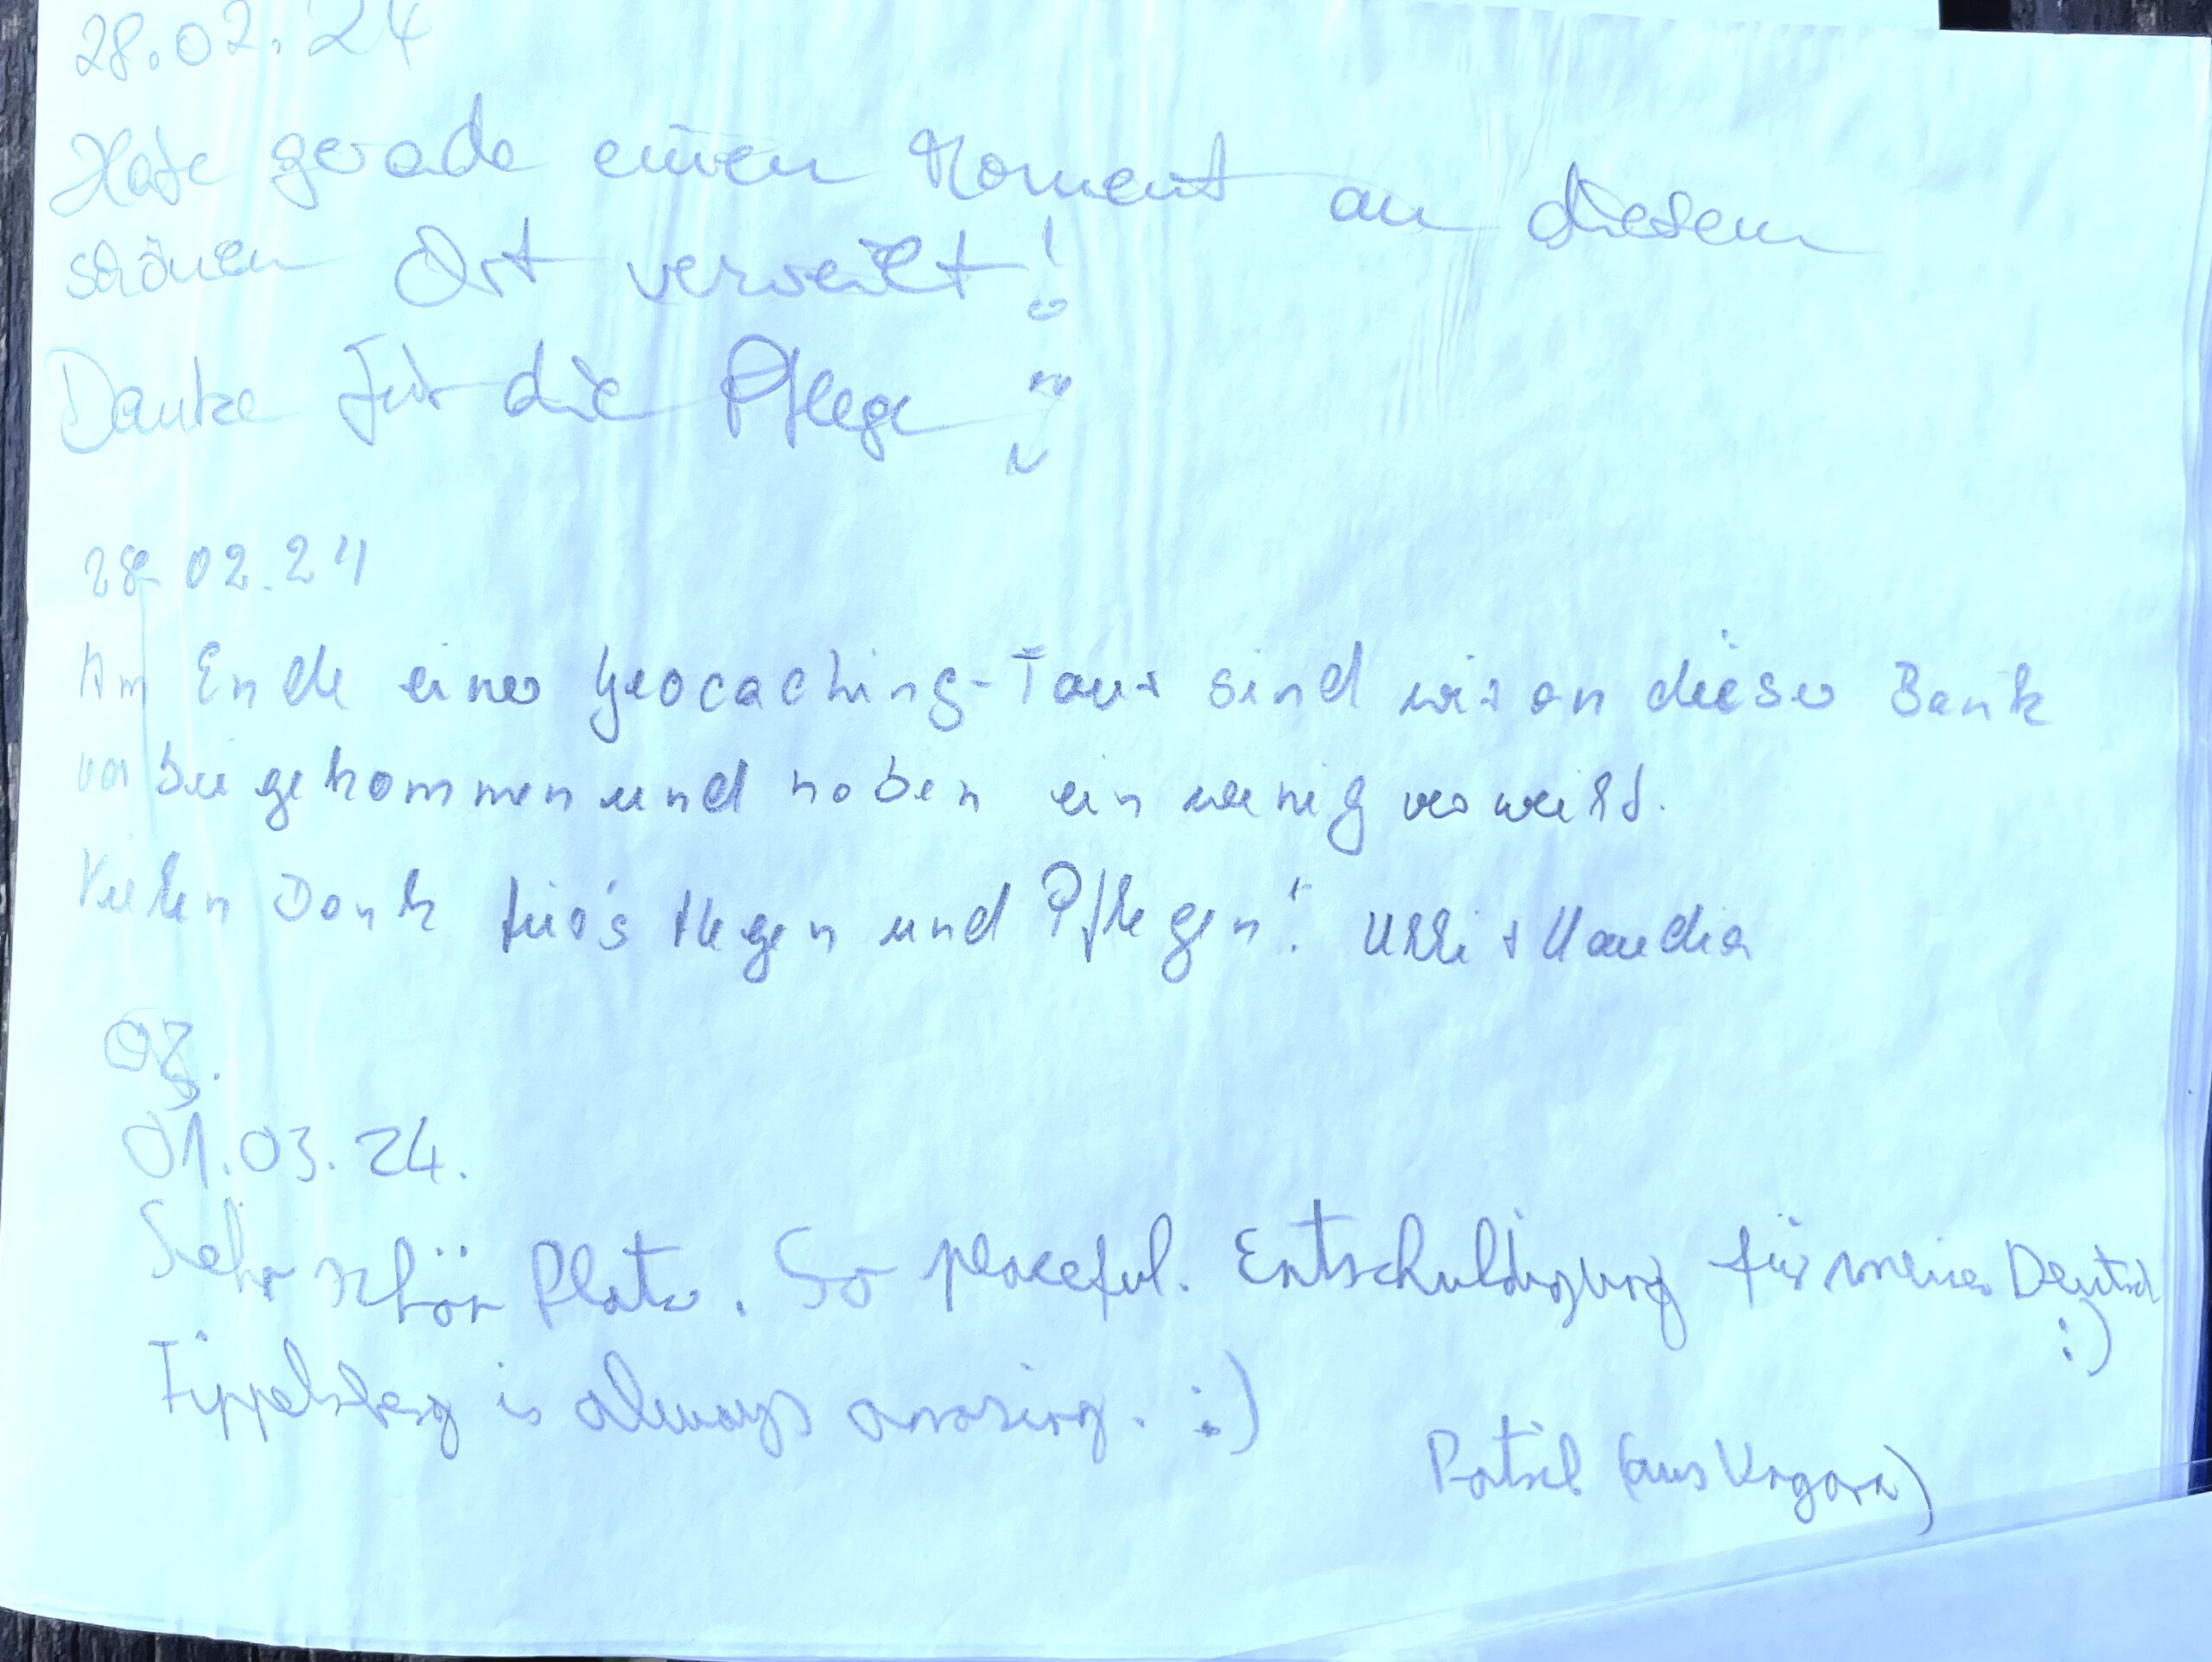 28.02.24
Habe gerade einen Moment an diesem
schönen Ort verweilt!
Danke für die Pflege
28.02.24
Am Ende einer Geocaching-Tour sind wir an dieser Bank
vorbeigekommen und haben ein wenig verweilt.
Vielen Dank für's Hegen und Pflegen! Ulli + Klaudia
01.03.24.
Sehr schön Platz. So peaceful. Entschuldigung für meine Deutsch
:)
Tippelsberg is always amazing. :)
(aus Ungarn)